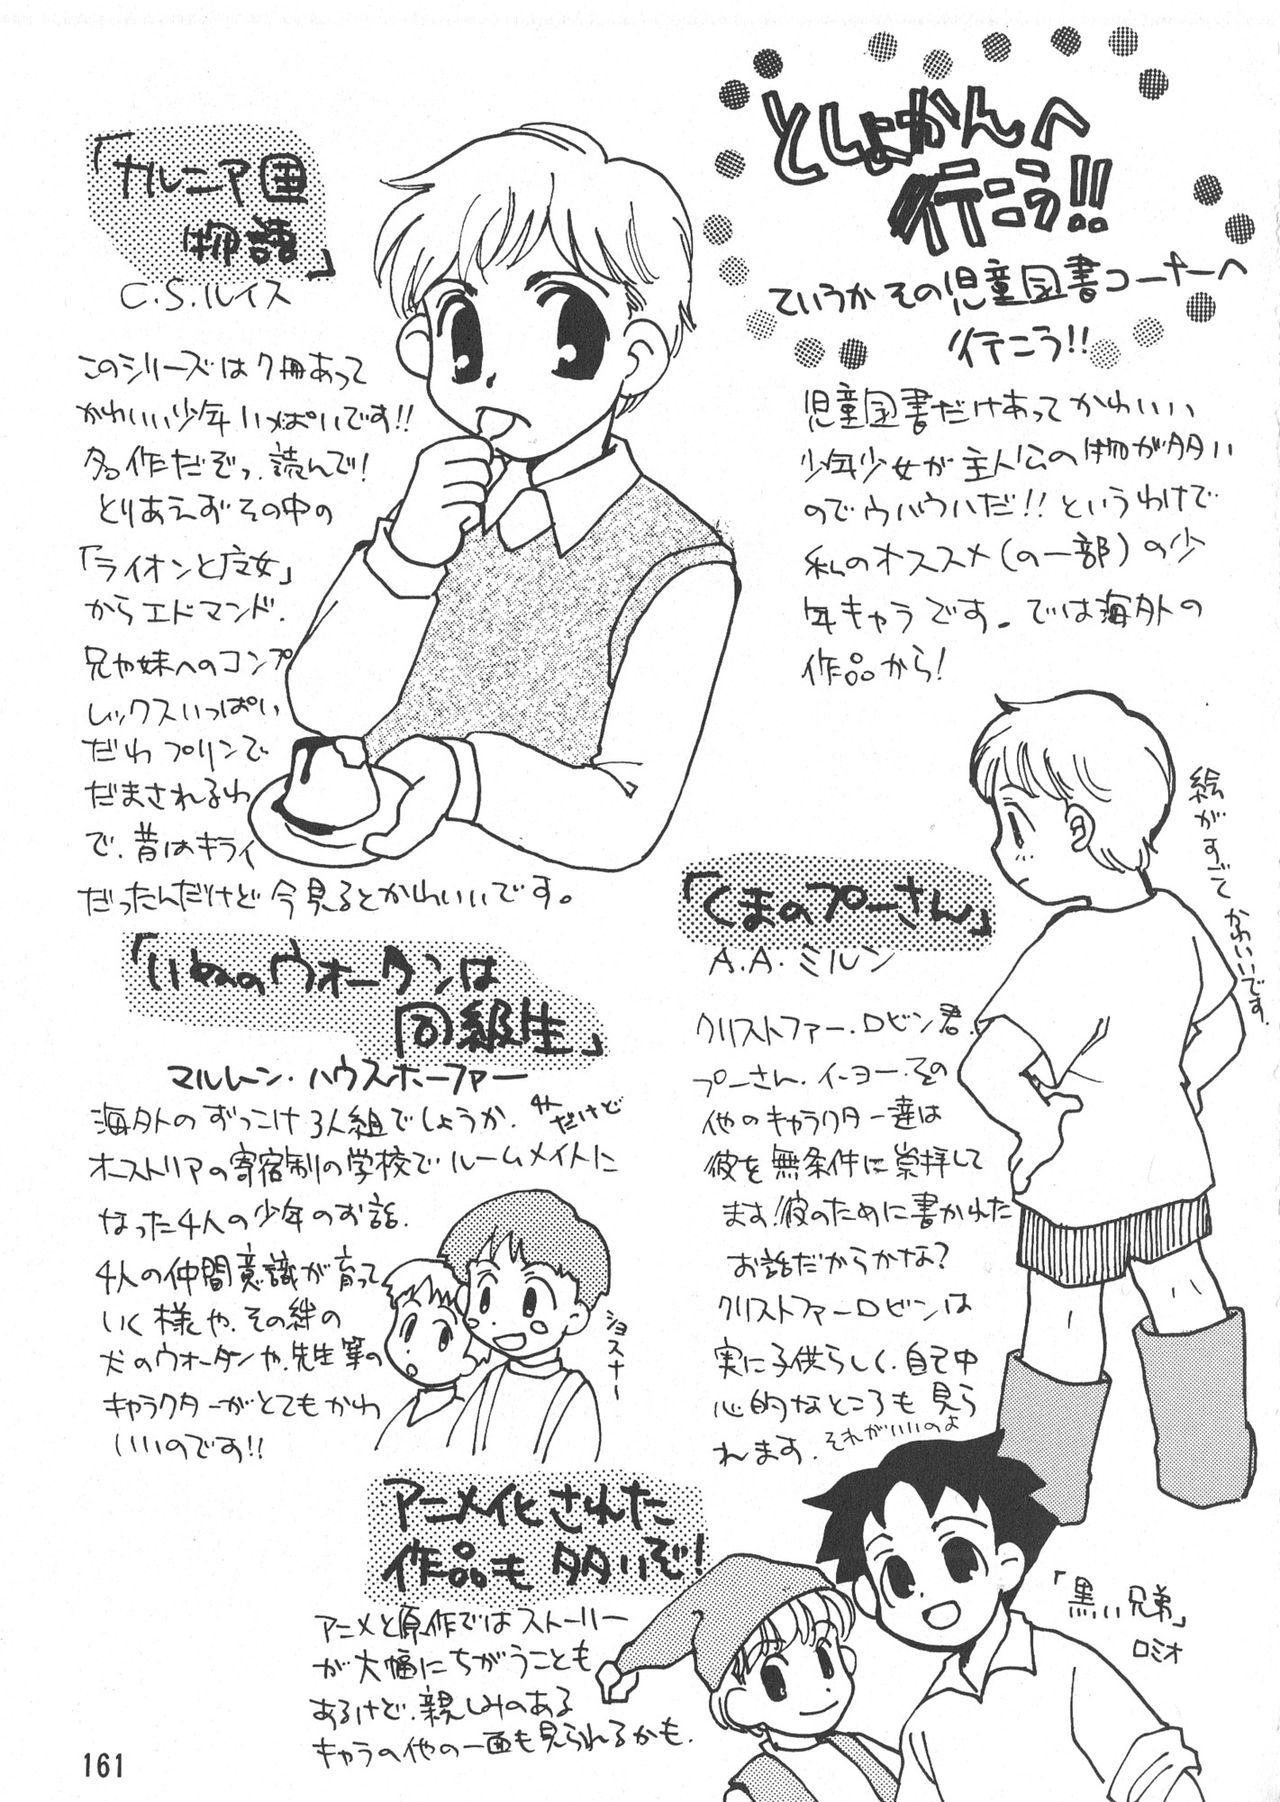 としょかんへ
行こう!!
ていうかその児童図書コーナーへ
行こう!!
児童図書だけあってかわいい
少年少女が主人公の物が多い
のでウハウハだ!!というわけで
私のオススメ(の一部)の少
年キャラです。では海外の
作品から!
「ナルニア国
物語」
C.S.ルイス
このシリーズは7冊あって
かわいい少年いっぱいです!!
名作だぞっ.読んで!
とりあえずその中の
「ライオンと魔女」
からエドマンド.
兄や妹へのコンプ
レックスいっぱい
だわプリンで
だまされるわ
で、昔はキライ
だったんだけど今見るとかわいいです。
「くまのプーさん」
A.A.ミルン
クリストファー・ロビン君.
プーさん.イーヨー.その
他のキャラクター達は
彼を無条件に崇拝して
ます!彼のために書かれた
お話だからかな?
クリストファーロビンは
実に子供らしく、自己中
心的なところも見ら
れます.それがいいのよ
絵がすごくかわいいです。
「いぬのウォータンは
同級生」
マルレーン・ハウスホーファー
海外のずっこけ3人組でしょうか.4人だけど
オーストリアの寄宿制の学校でルームメイトに
なった4人の少年のお話.
4人の仲間意識が育って
いく様や、その絆の
犬のウォータンや、先生等の
キャラクターがとてもかわ
いいのです!!
ショスナー
アニメ化された
作品も多いぞ!
アニメと原作ではストーリー
が大幅にちがうことも
あるけど.親しみのある
キャラの他の一面も見られるかも.
「黒い兄弟」
ロミオ
161